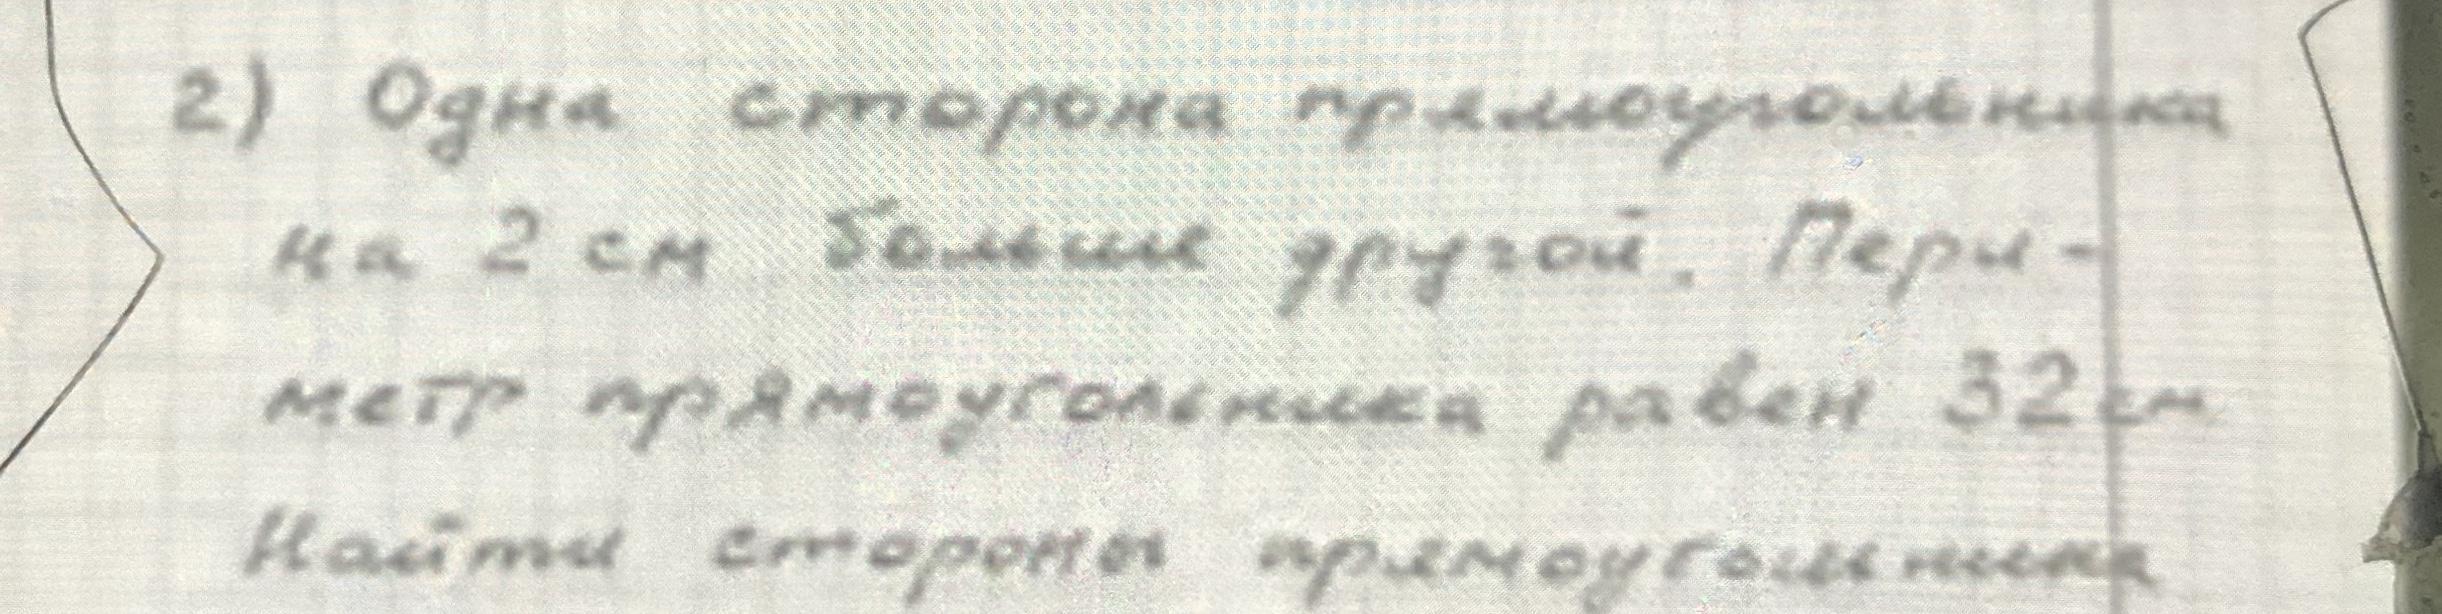 2) Одна сторона прямоугольника
на 2 см больше другой. Пери-
метр прямоугольника равен 32 см
Найти стороны прямоугольника